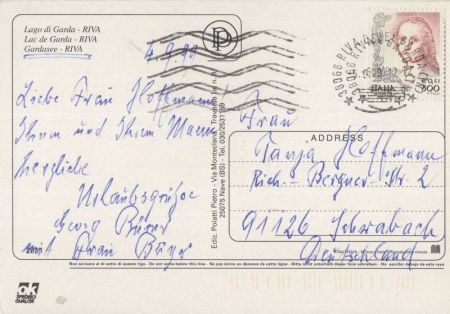 Lago di Garda - RIVA
Lac de Garda - RIVA
Gardasee - RIVA
4.9.99
Liebe Frau Hoffmann!
Ihnen und Ihrem Mann
herzliche
Urlaubsgrüße
Georg
mit Frau
P
Ediz. Poiatti Pietro - Via Montesclana - Traversa
25075 Nave (BS) - Tel. 030/2531159
38066 RIVA
ITALIA
800
ADDRESS
Frau
Tanja Hoffmann
Rich.-Bergner-Str. 2
91126 Schwabach
Deutschland
Non scrivere al di sotto di questa riga - Do not write below this line - Ne pas écrire au dessous de cette ligne - Bitte nicht unterhalb dieser Linie schreiben - No escribir debajo de esta raya
ok